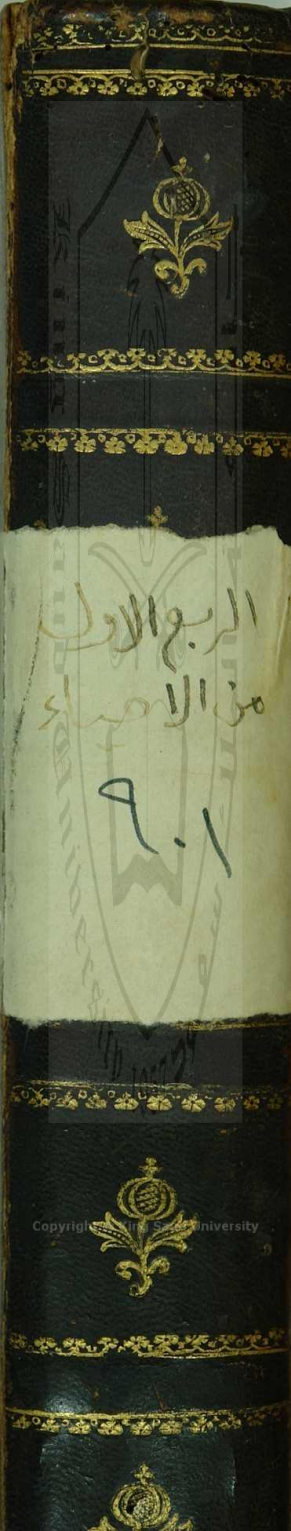 الربع الاول
من الاحياء
٩٠١
Copyright © King Saud University